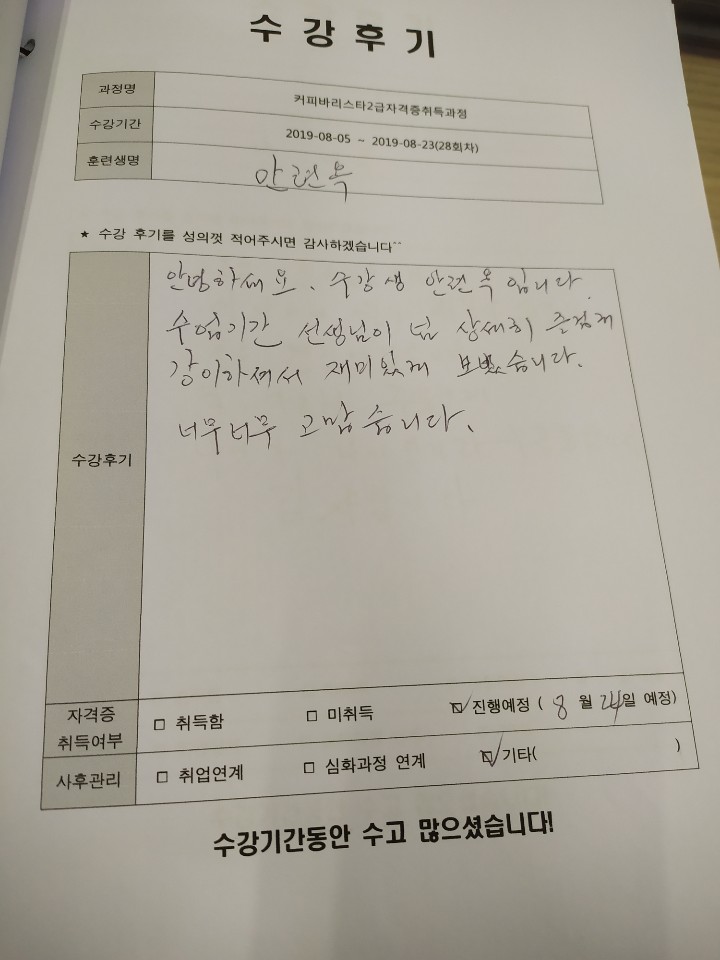 수강후기
과정명 커피바리스타2급자격증취득과정
수강기간 2019-08-05 ~ 2019-08-23(28회차)
훈련생명 안련옥
★ 수강 후기를 성의껏 적어주시면 감사하겠습니다^^
안녕하세요. 수강생 안련옥입니다.
수업기간 선생님이 넘 상세히 즌검게
강이하셔서 재미있게 보냈습니다.
너무너무 고맙습니다.
수강후기
자격증 취득여부 □ 취득함 □ 미취득 ☑ 진행예정 ( 8 월 24일 예정)
사후관리 □ 취업연계 □ 심화과정 연계 ☑ 기타( )
수강기간동안 수고 많으셨습니다!